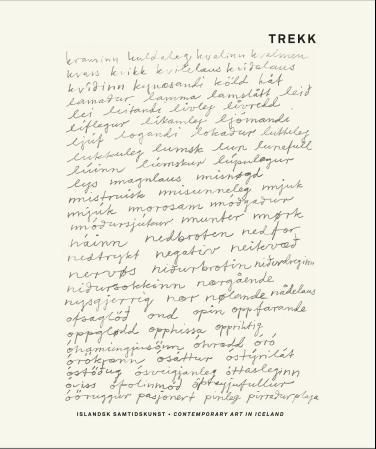 TREKK
kvikk
kvíðinn kynosandi köld kát
lamaður lamma lamslått leið
lei leitandi livleg livredd
líflegur ljómandi
ljúf logandi lokaður lutteleg
lukkuleg lumsk lur lunefull
lúinn lúmskur lúpulegur
lys magnlaus misnøgd
mistruisk misunneleg mjuk
mjúk morosam móðgaður
móðursjúkur munter mørk
náinn nedbroten nedfor
nedtrykt negativ neikvæð
nervøs niðurbrotin niðurdreginn
niðursokkinn nærgående
nysgjerrig nær nølande nådelaus
ofsaglöð ond opin oppfarande
oppglødd opphissa oppriktig
óhamingjusöm óhrædd óró
órökrænn ósáttur óstýrilát
óstöðug ósveigjanleg óttaslegin
óviss óþolinmóð
óöruggur pasjonert pinleg pirraður
ISLANDSK SAMTIDSKUNST • CONTEMPORARY ART IN ICELAND